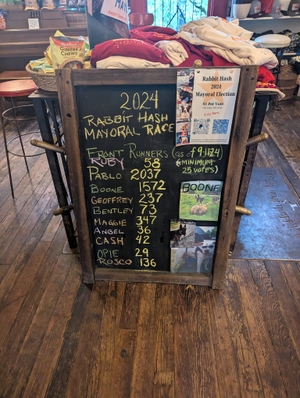 2024
RABBIT HASH
MAYORAL RACE
FRONT RUNNERS (as of 9/1/24)
(MINIMUM
25 VOTES)
RUBY 58
PABLO 2037
BOONE 1572
GEOFFREY 237
BENTLEY 73
MAGGIE 347
ANGEL 36
CASH 42
OPIE 29
ROSCO 136
Rabbit Hash
2024
Mayoral Election
BOONE